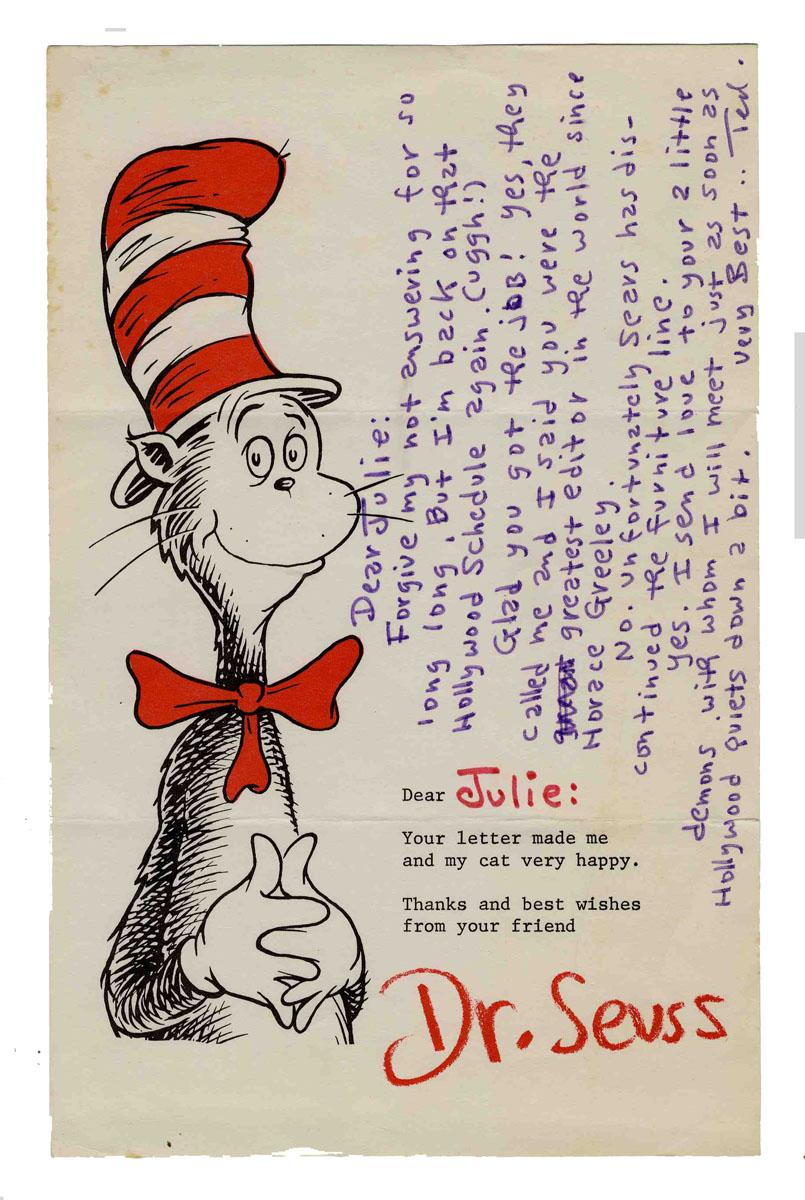 Dear Julie:
Forgive my not answering for so
long long, But I'm back on that
Hollywood Schedule again. (uggh!)
Glad you got the job! Yes, they
called me and I said you were the
greatest editor in the world since
Horace Greeley.
No. Unfortunately Sears has dis-
continued the furniture line.
Yes. I send love to your 2 little
demons with whom I will meet just as soon as
Hollywood quiets down a bit. Very Best .. Ted.
Dear Julie:
Your letter made me
and my cat very happy.
Thanks and best wishes
from your friend
Dr. Seuss